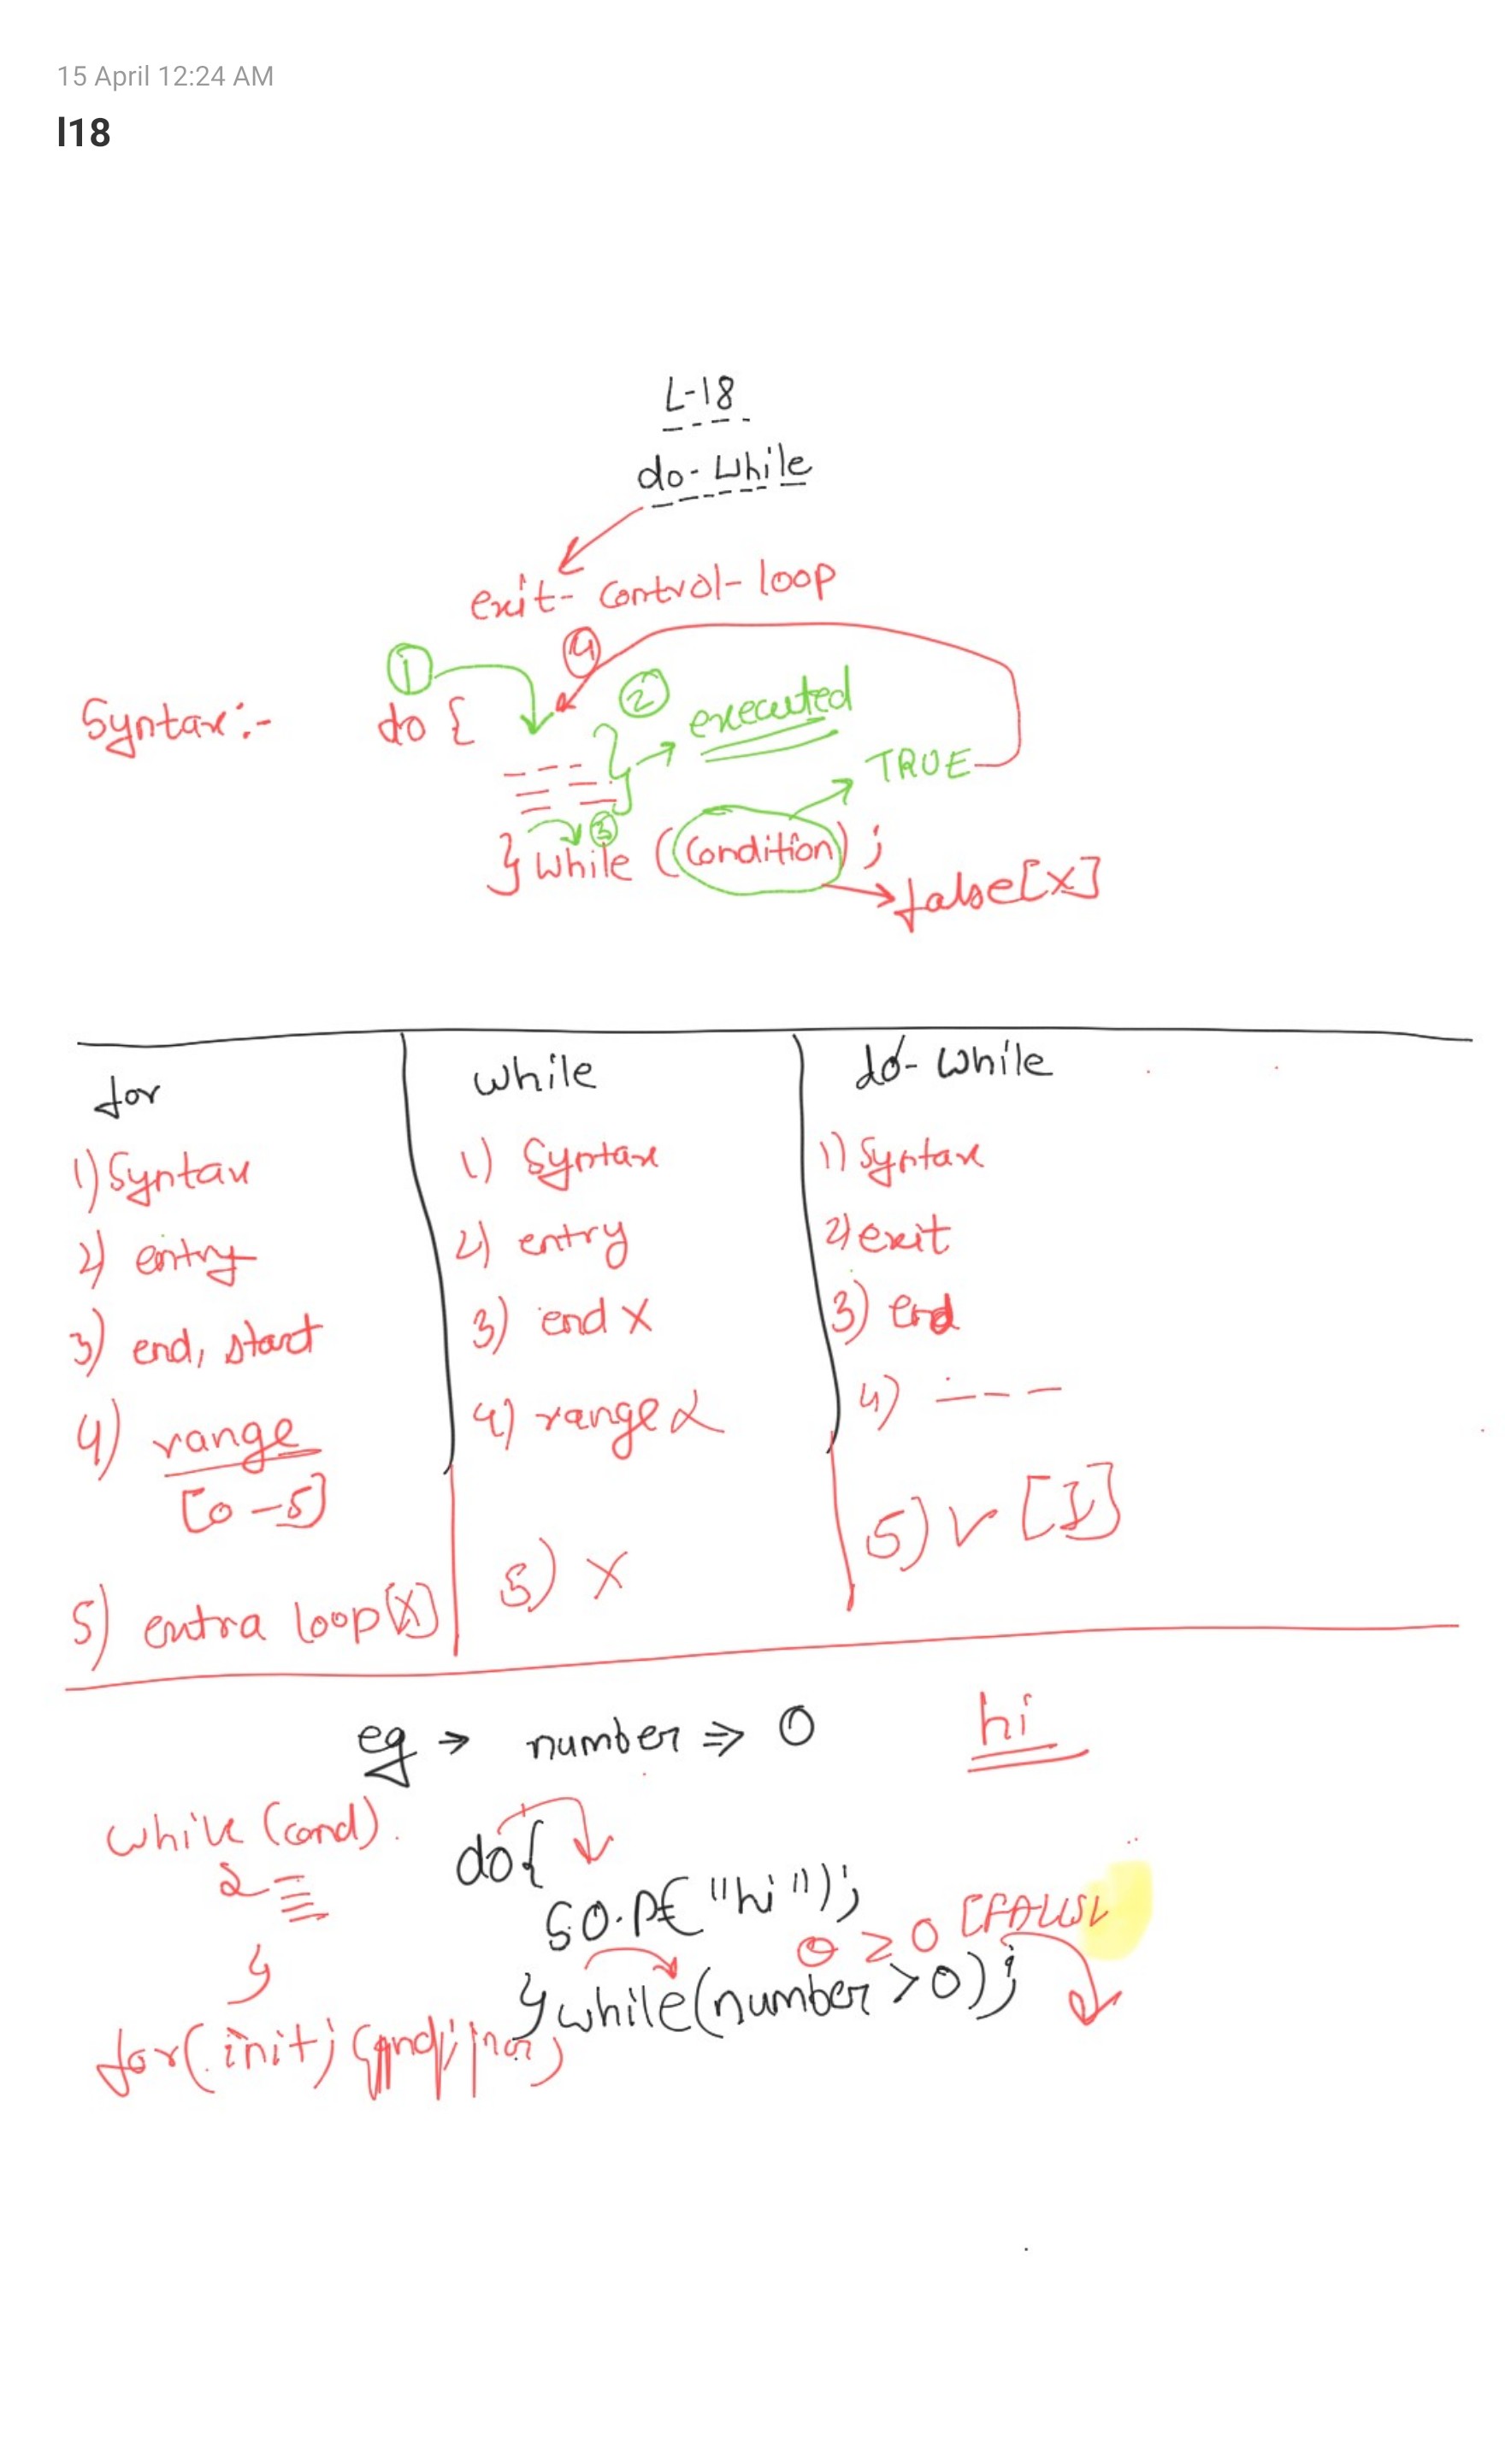 15 April 12:24 AM
l18
L-18
do-while
exit- control-loop
① ④ ②
Syntax:- do { executed
TRUE
③
} while (condition) ;
false[x]
for while do-while
1) Syntax 1) Syntax 1) Syntax
2) entry 2) entry 2) exit
3) end, start 3) end x 3) end
4) range 4) range x 4) ---
[0-5]
5) extra loop[x] 5) x 5) ✓ [1]
eg → number ⇒ 0 hi
while (cond).
{ do{
SO.P("hi");
0 > 0 [FALSE
} } while(number > 0);
for(init; cond; incr)